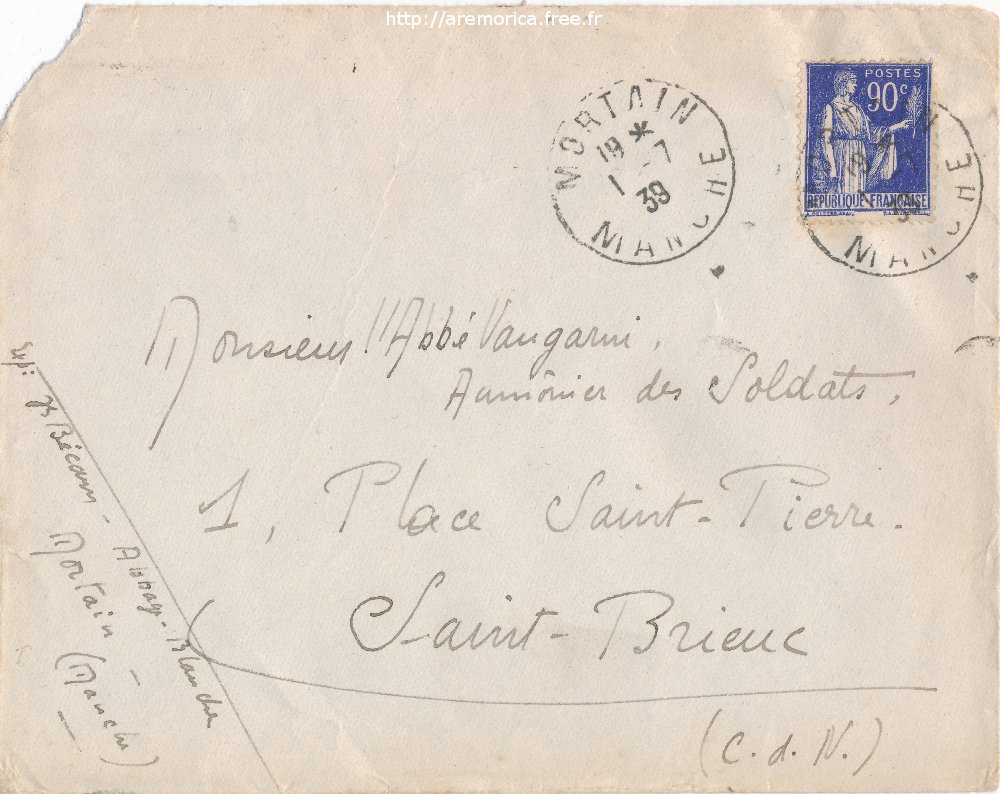 http://aremorica.free.fr
POSTES
90c
REPUBLIQUE FRANÇAISE
MORTAIN
19 *
1 - 7
38
MANCHE
19 *
MANCHE
Monsieur l'Abbé Vaugarni,
Aumônier des Soldats,
1, Place Saint-Pierre.
Saint-Brieuc
(C. d. N.)
Exp: Bécam - Abbaye-Blanche
Mortain -
(Manche)